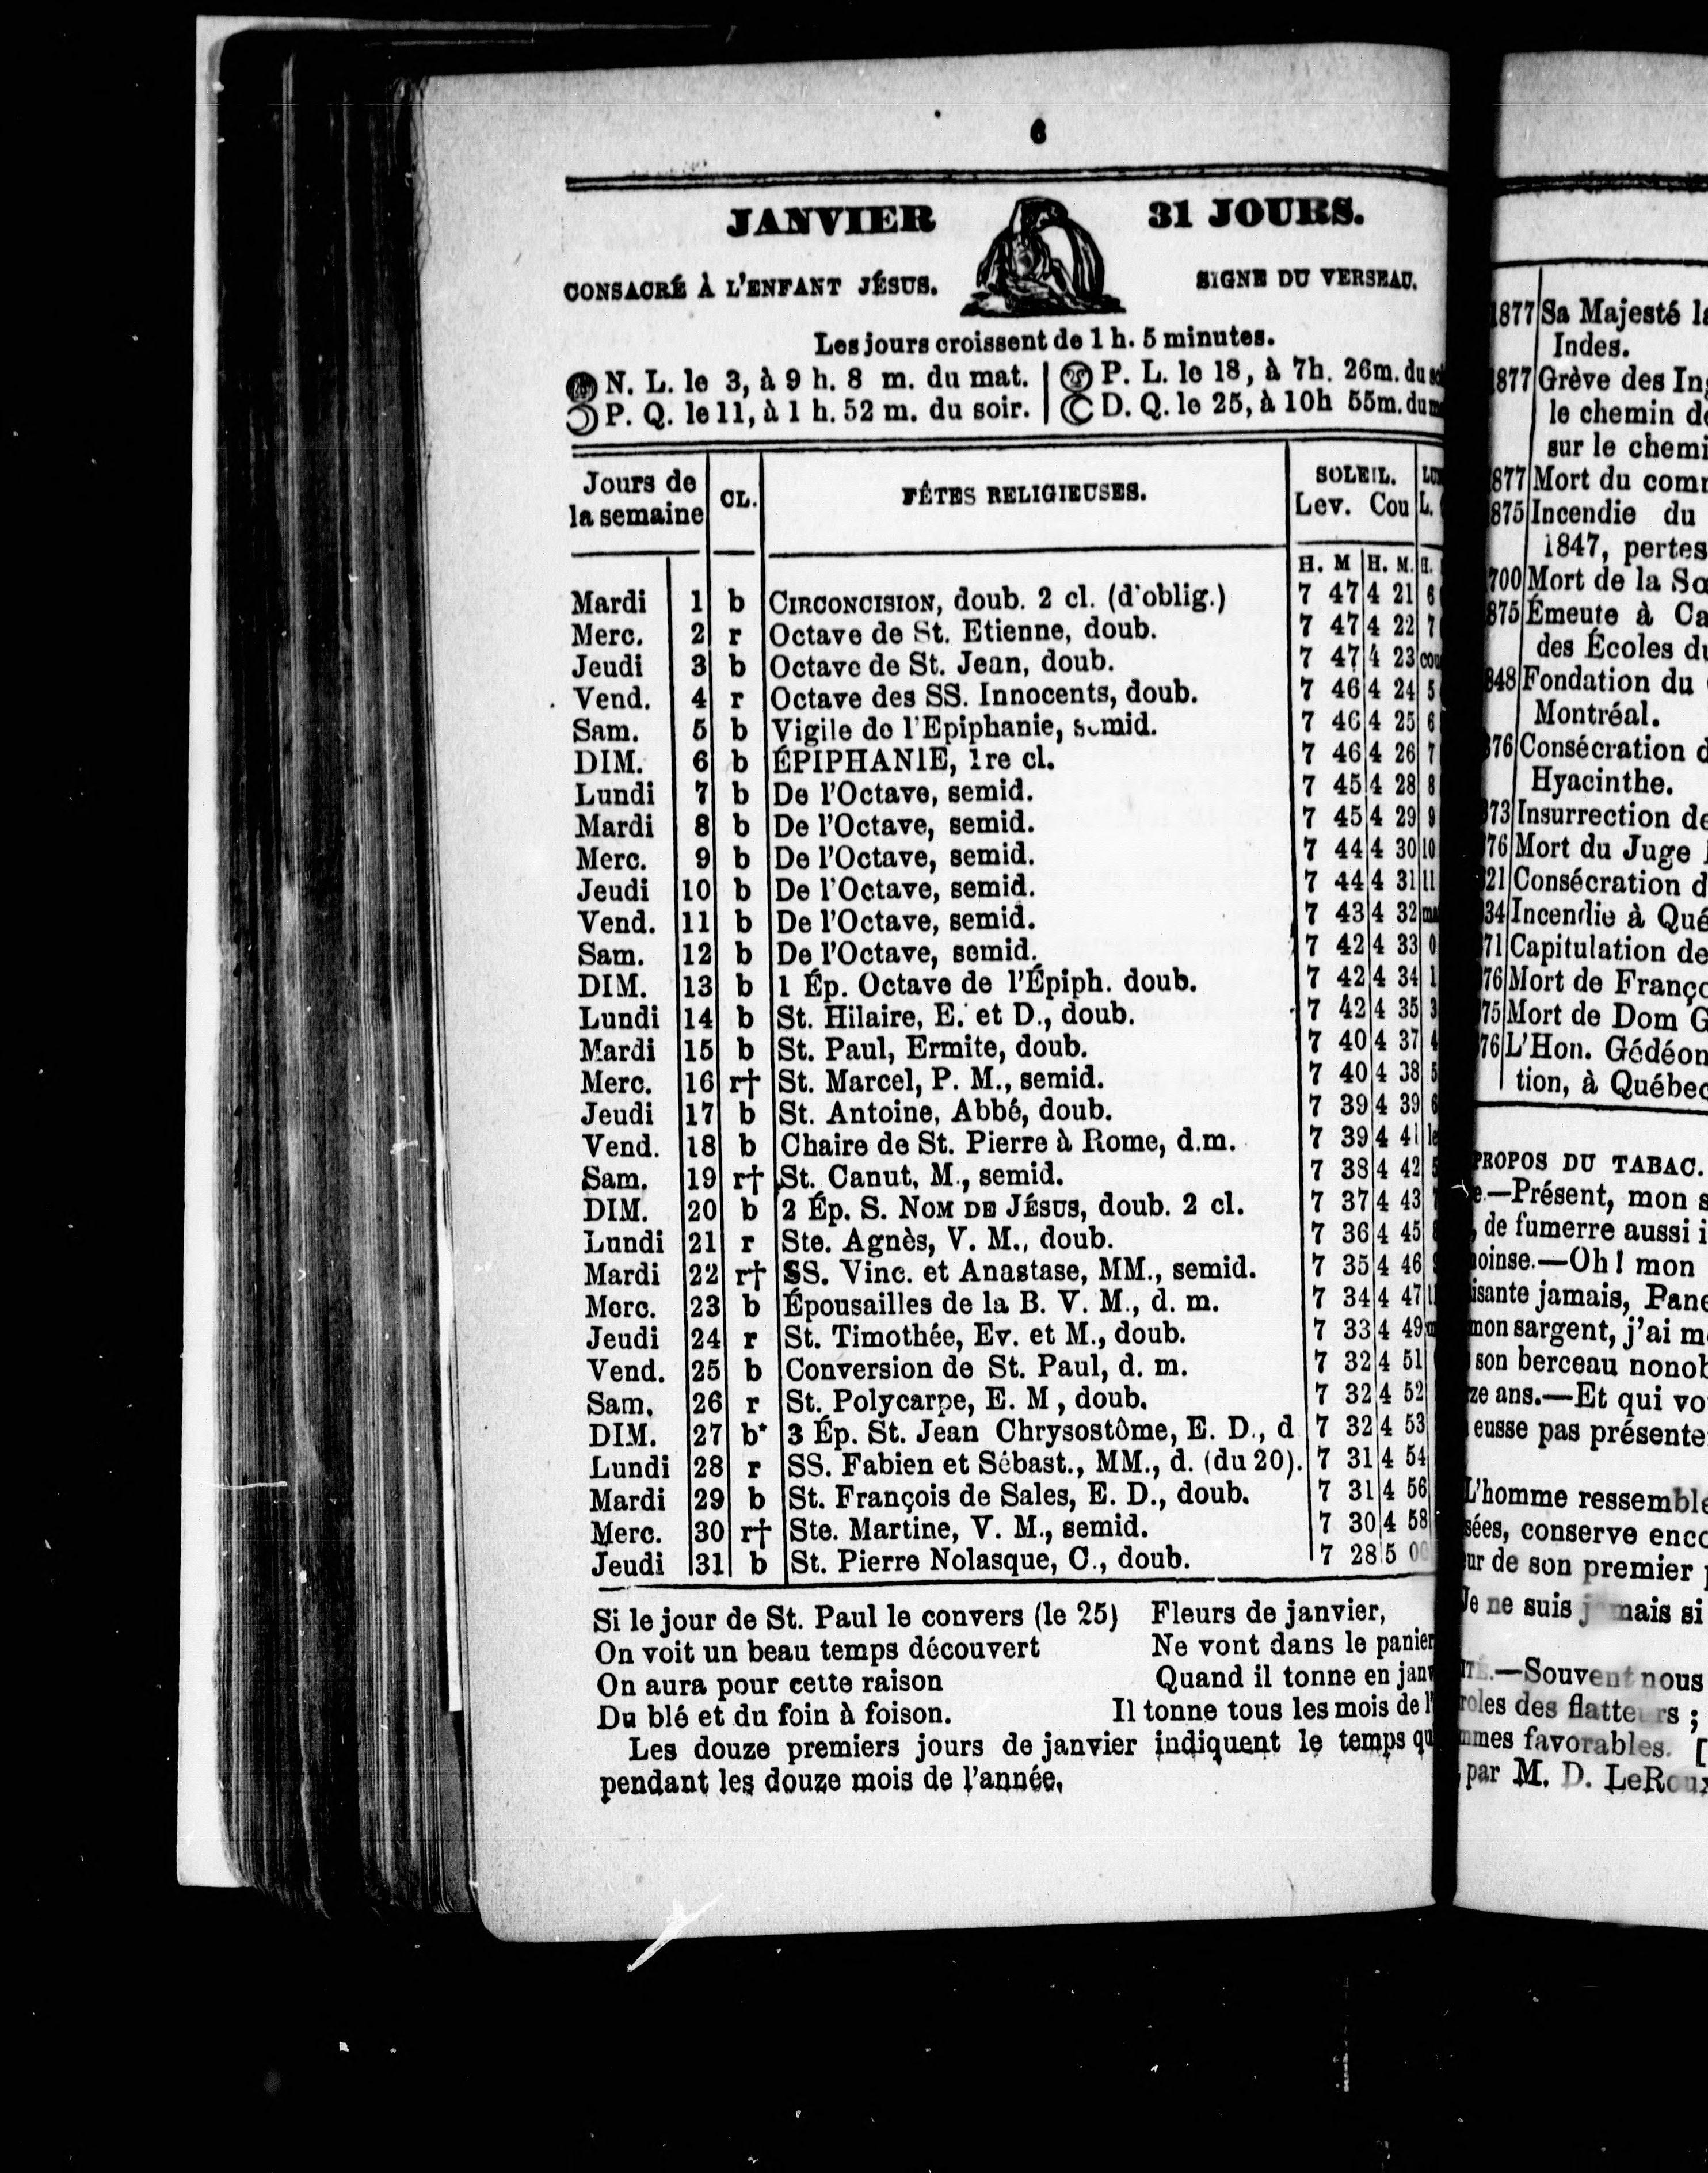 6
JANVIER 31 JOURS.
CONSACRÉ À L'ENFANT JÉSUS. SIGNE DU VERSEAU.
Les jours croissent de 1 h. 5 minutes.
N. L. le 3, à 9 h. 8 m. du mat. | P. L. le 18, à 7h. 26m. du
P. Q. le 11, à 1 h. 52 m. du soir. | D. Q. le 25, à 10h 55m. du
Jours de la semaine CL. FÊTES RELIGIEUSES. SOLEIL. Lev. Cou L.
H. M H. M. H.
Mardi 1 b CIRCONCISION, doub. 2 cl. (d'oblig.) 7 47 4 21 6
Merc. 2 r Octave de St. Etienne, doub. 7 47 4 22 7
Jeudi 3 b Octave de St. Jean, doub. 7 47 4 23
Vend. 4 r Octave des SS. Innocents, doub. 7 46 4 24 5
Sam. 5 b Vigile de l'Epiphanie, semid. 7 46 4 25 6
DIM. 6 b ÉPIPHANIE, 1re cl. 7 46 4 26 7
Lundi 7 b De l'Octave, semid. 7 45 4 28 8
Mardi 8 b De l'Octave, semid. 7 45 4 29 9
Merc. 9 b De l'Octave, semid. 7 44 4 30 10
Jeudi 10 b De l'Octave, semid. 7 44 4 31 11
Vend. 11 b De l'Octave, semid. 7 43 4 32
Sam. 12 b De l'Octave, semid. 7 42 4 33 0
DIM. 13 b 1 Ép. Octave de l'Épiph. doub. 7 42 4 34 1
Lundi 14 b St. Hilaire, E. et D., doub. 7 42 4 35 3
Mardi 15 b St. Paul, Ermite, doub. 7 40 4 37 4
Merc. 16 r† St. Marcel, P. M., semid. 7 40 4 38 5
Jeudi 17 b St. Antoine, Abbé, doub. 7 39 4 39 6
Vend. 18 b Chaire de St. Pierre à Rome, d.m. 7 39 4 41
Sam. 19 r† St. Canut, M., semid. 7 38 4 42
DIM. 20 b 2 Ép. S. NOM DE JÉSUS, doub. 2 cl. 7 37 4 43
Lundi 21 r Ste. Agnès, V. M., doub. 7 36 4 45
Mardi 22 r† SS. Vinc. et Anastase, MM., semid. 7 35 4 46
Merc. 23 b Épousailles de la B. V. M., d. m. 7 34 4 47
Jeudi 24 r St. Timothée, Ev. et M., doub. 7 33 4 49
Vend. 25 b Conversion de St. Paul, d. m. 7 32 4 51
Sam. 26 r St. Polycarpe, E. M, doub. 7 32 4 52
DIM. 27 b* 3 Ép. St. Jean Chrysostôme, E. D., d 7 32 4 53
Lundi 28 r SS. Fabien et Sébast., MM., d. (du 20). 7 31 4 54
Mardi 29 b St. François de Sales, E. D., doub. 7 31 4 56
Merc. 30 r† Ste. Martine, V. M., semid. 7 30 4 58
Jeudi 31 b St. Pierre Nolasque, C., doub. 7 28 5 00
Si le jour de St. Paul le convers (le 25)
On voit un beau temps découvert
On aura pour cette raison
Du blé et du foin à foison.
Fleurs de janvier,
Ne vont dans le panier
Quand il tonne en janv
Il tonne tous les mois de l'
Les douze premiers jours de janvier indiquent le temps qu
pendant les douze mois de l'année.
1877 Sa Majesté
Indes.
1877 Grève des
le chemin
sur le chemi
877 Mort du
875 Incendie du
1847, pertes
700 Mort de la
875 Émeute à Ca
des Écoles du
848 Fondation du
Montréal.
76 Consécration d
Hyacinthe.
73 Insurrection de
76 Mort du Juge
21 Consécration d
34 Incendie à Qué
71 Capitulation de
76 Mort de Franço
75 Mort de Dom G
76 L'Hon. Gédéon
tion, à Québec
PROPOS DU TABAC.
—Présent, mon s
, de fumerre aussi i
oinse.—Oh! mon
isante jamais, Pane
mon sargent, j'ai m
son berceau nonob
ze ans.—Et qui vo
eusse pas présente
L'homme ressemble
sées, conserve enco
ur de son premier
Je ne suis jamais si
.—Souvent nous
roles des flatteurs ;
mmes favorables. [
par M. D. LeRoux